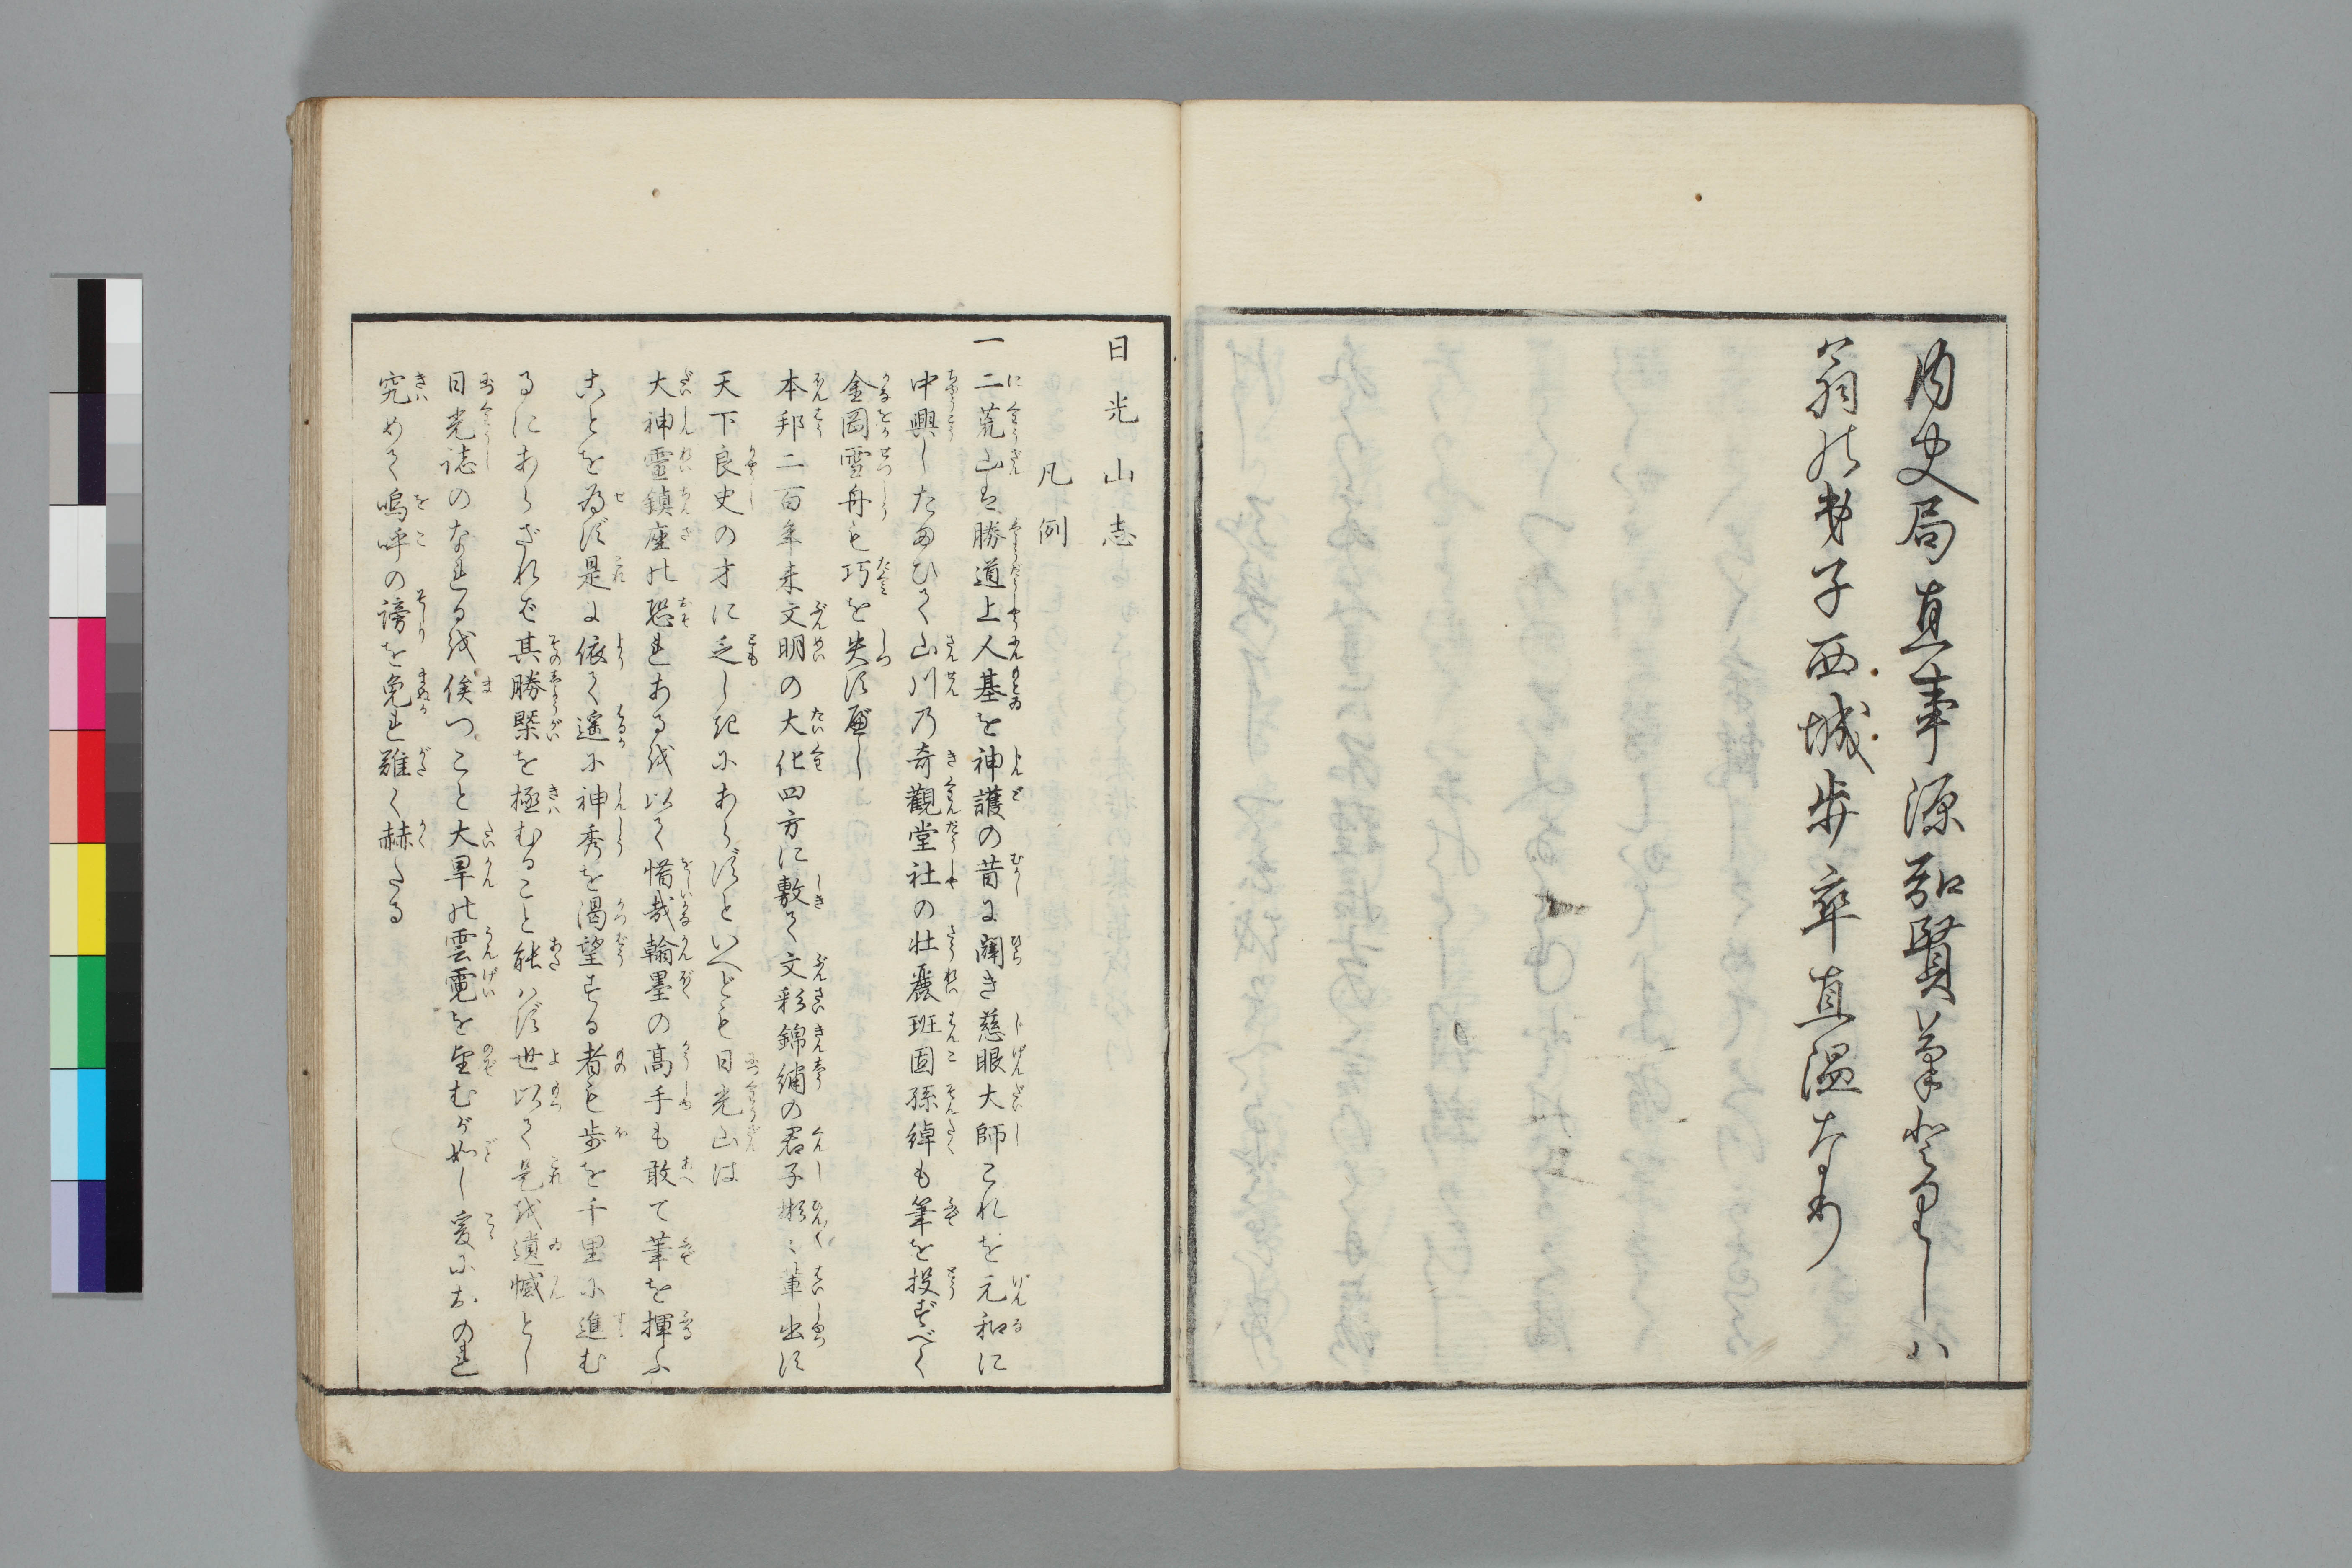 内史局直事源弘賢筆を染しハ
翁の弟子西城歩卒直温なり
日光山志
凡例
一二荒山は勝道上人基を神護の昔に闢き慈眼大師これを元和に
中興したまひて山川乃奇觀堂社の壮麗班固孫綽も筆を投ずべく
金岡雪舟も巧を失ふ可し
本邦二百年来文明の大化四方に敷て文彩錦繍の君子彬〻輩出し
天下良史の才に乏しきにあらずといへども日光山は
大神靈鎮座の恐れあるを以て惜哉翰墨の高手も敢て筆を揮ふ
ことを為ず是に依て遥に神秀を渇望する者も歩を千里に進む
るにあらざれば其勝槩を極むること能はず世以て是を遺憾とし
日光誌のなれるを俟つこと大旱の雲霓を望むが如し爰におのれ
究めて嗚呼の謗を免れ難く赫たる